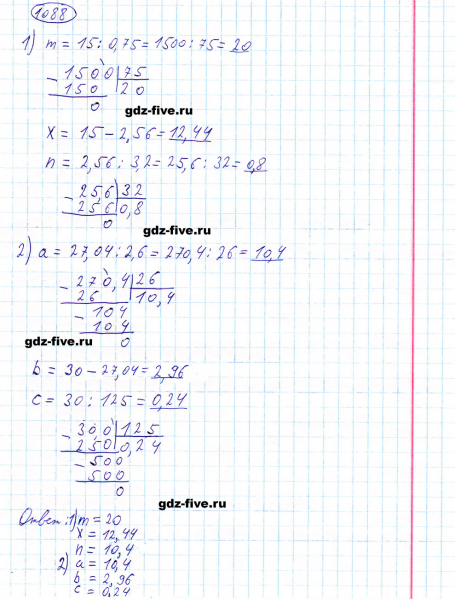 1088
1) m = 15 : 0,75 = 1500 : 75 = 20
- 1500 | 75
150 | 20
0
gdz-five.ru
x = 15 - 2,56 = 12,44
n = 2,56 : 3,2 = 25,6 : 32 = 0,8
- 25,6 | 32
256 | 0,8
0
gdz-five.ru
2) a = 27,04 : 2,6 = 270,4 : 26 = 10,4
- 270,4 | 26
26 | 10,4
- 104
104
0
gdz-five.ru
b = 30 - 27,04 = 2,96
c = 30 : 125 = 0,24
- 30,0 | 125
250 | 0,24
- 500
500
0
gdz-five.ru
Ответ: 1) m = 20
x = 12,44
n = 10,4
2) a = 10,4
b = 2,96
c = 0,24